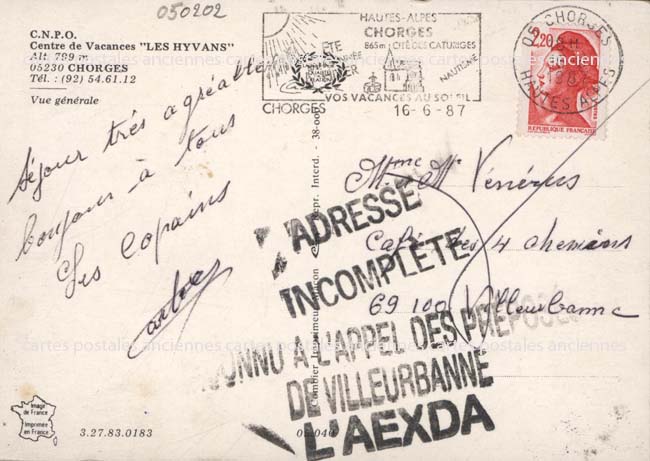 050202
C.N.P.O.
Centre de Vacances "LES HYVANS"
Alt. 799 m
05230 CHORGES
Tél. : (92) 54.61.12
Vue générale
HAUTES-ALPES
CHORGES
865m CITÉ DES CATURIGES
ETE
NAUTISME
CHORGES
VOS VACANCES AU SOLEIL
16-6-87
05 CHORGES
HAUTES ALPES
2,20
REPUBLIQUE FRANÇAISE
Séjour très agréable
bonjour à tous
Les copains
Mme Mr Vénérus
Café des 4 chemins
69100 Villeurbanne
L'ADRESSE
INCOMPLETE
CONNU A L'APPEL DES PREPOSES
DE VILLEURBANNE
L'AEXDA
cartes postales anciennes
Image
de France
Imprimée
en France
3.27.83.0183